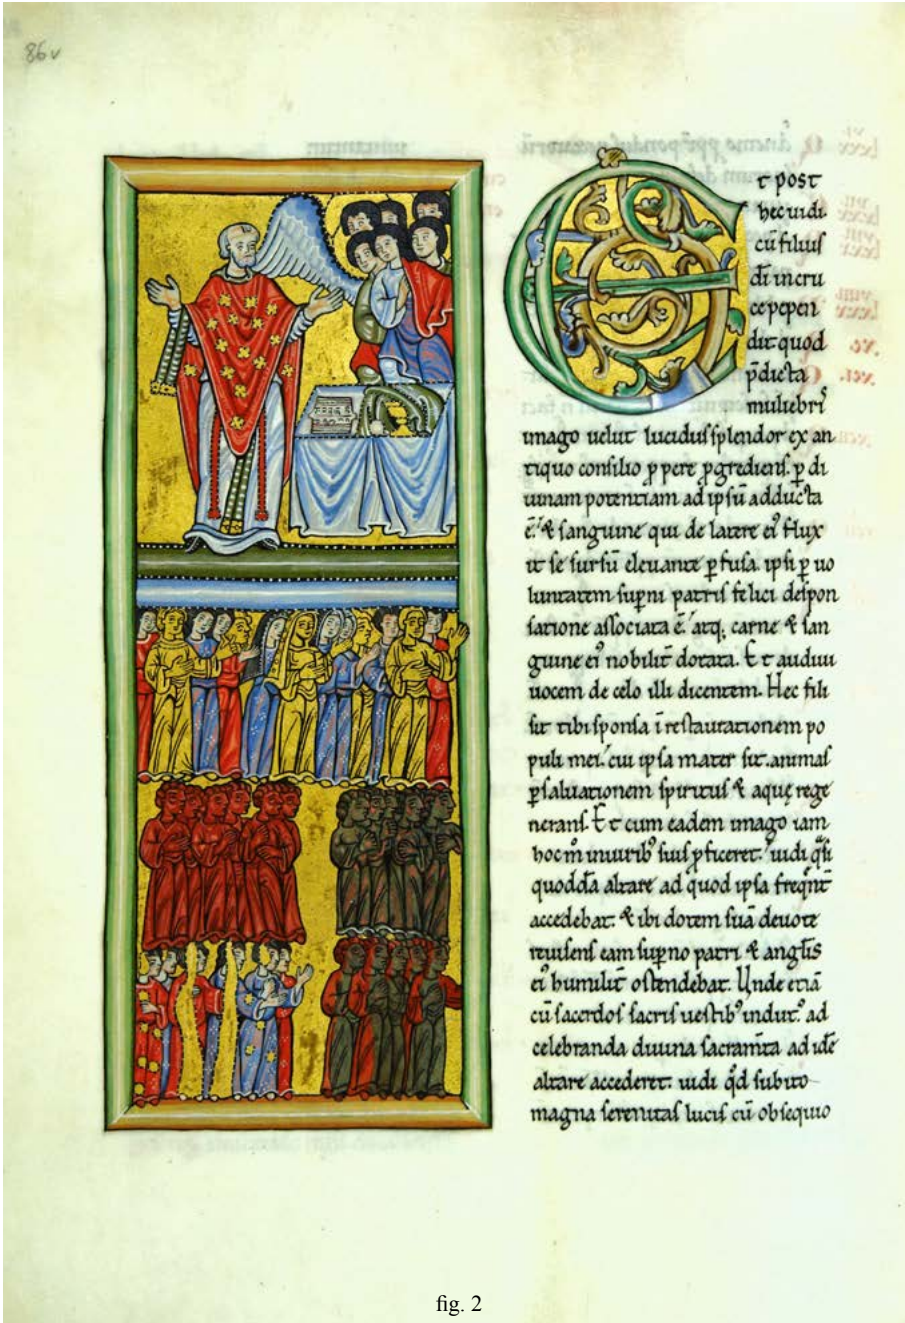 86v
Et post
hec uidi
cū filiuſ
dī in cru
ce pepen
dit quod
p̄dicta
muliebriſ
imago uelut luciduſ ſplendor ex an
tiquo conſilio ꝓpere ꝓgredienſ. ꝑ di
uinam potentiam ad ipſū adducta
ē. & ſanguine qui de latere eiꝰ flux
it ſe ſurſū eleuante ꝑfuſa. ipſi ꝑ uo
luntatem ſuꝑni patriſ felici deſpon
ſatione aſſociata ē. atq; carne & ſan
guine eiꝰ nobilit̄ dotata. Et audiui
uocem de celo illi dicentem. Hec fili
ſit tibi ſponſa ī reſtaurationem po
puli mei. cui ipſa mater ſit. animaſ
ꝑ ſaluationem ſpirituſ & aquę rege
neranſ. Et cum eadem imago iam
hoc m̄ in uiribꝰ ſuiſ ꝓficeret. uidi q̄ſi
quoddā altare ad quod ipſa freq̄nt̄
accedebat. & ibi dotem ſuā deuote
reuiſenſ eam ſuꝑno patri & anglīſ
eiꝰ humilit̄ oſtendebat. Unde etiā
cū ſacerdoſ ſacriſ ueſtibꝰ indutꝰ ad
celebranda diuina ſacram̄ta ad idē
altare accederet. uidi qd̄ ſubito
magna ſerenitaſ luciſ cū obſequio
fig. 2